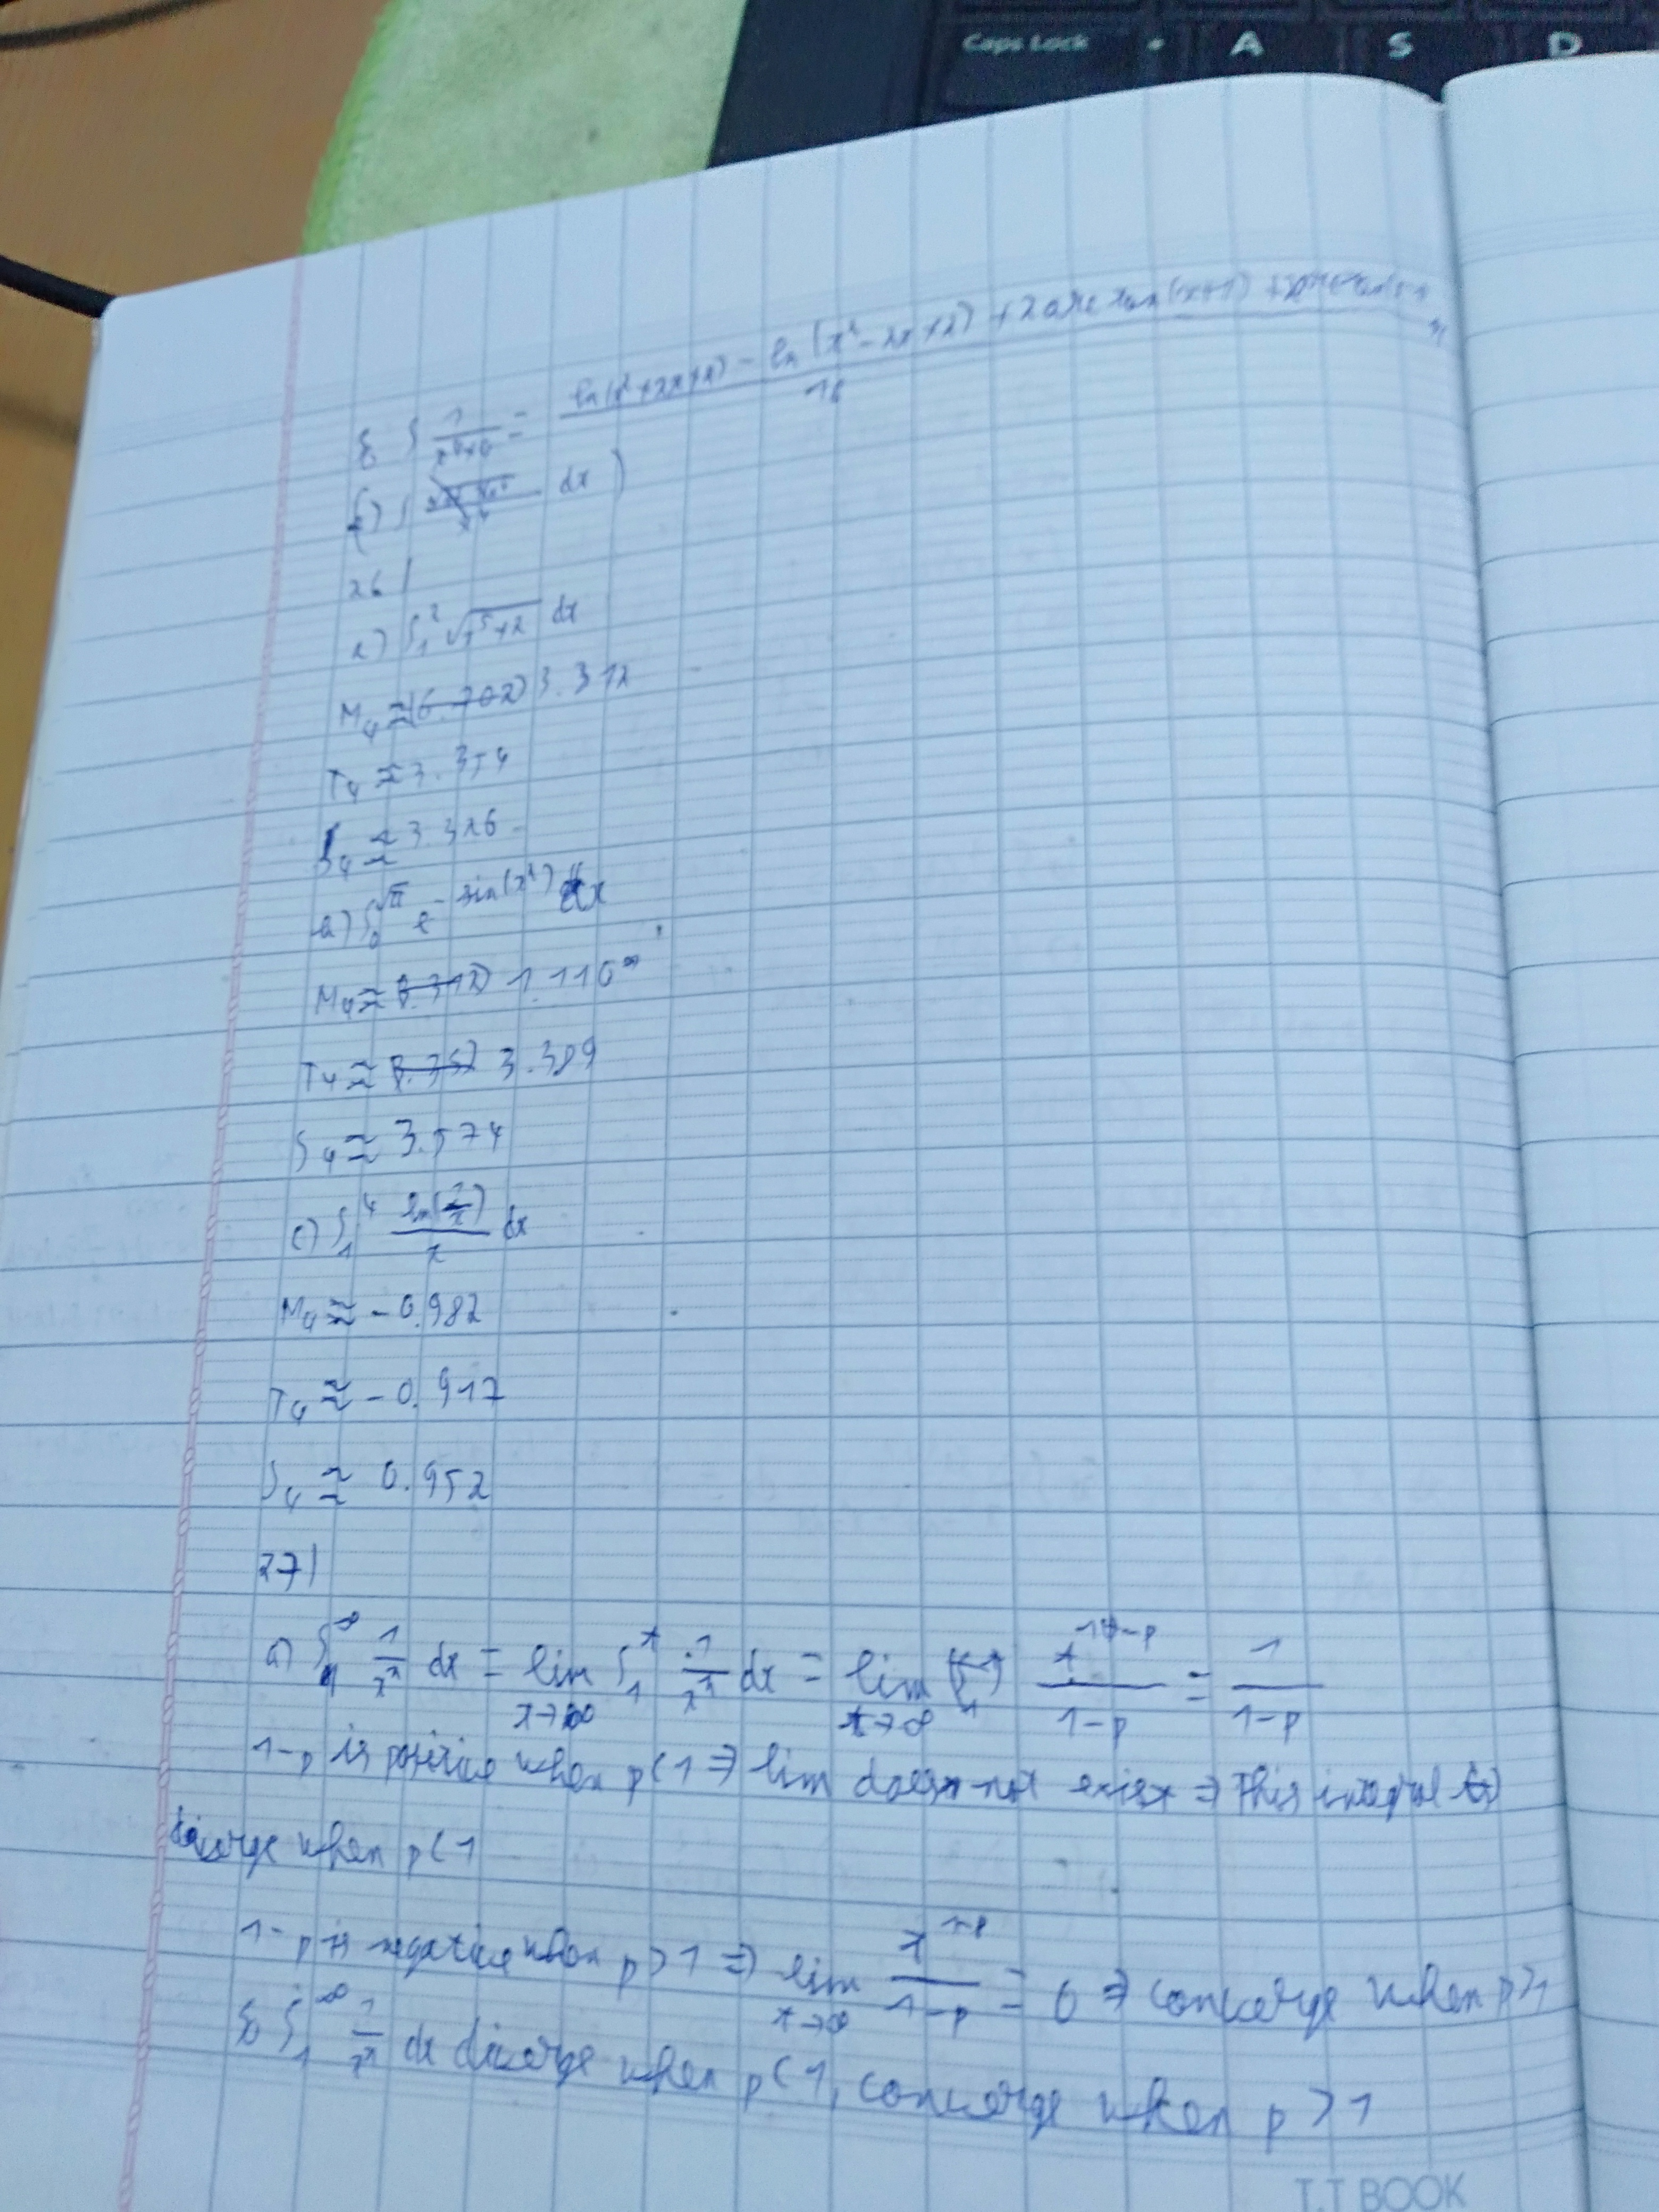 Caps Lock A S D
∫ 1/(x⁴+4) = (ln(x²+2x+2) - ln(x²-2x+2) + 2arctan(x+1) + 2arctan(x-1))/16
dx )
26/
a) ∫₁² √(x⁵+2) dx
M₄ ≈ (6.702) 3.312
T₄ ≈ 3.354
S₄ ≈ 3.326
b) ∫₀^√π e^(-sin(x²)) dx
M₄ ≈ 3.312) 1.110
T₄ ≈ 3.389
S₄ ≈ 3.574
c) ∫₁⁴ ln(2/x)/x dx
M₄ ≈ - 0.982
T₄ ≈ - 0.917
S₄ ≈ 0.952
27/
a) ∫₁^∞ 1/xⁿ dx = lim x→∞ ∫₁^t 1/xⁿ dx = lim t→∞ t^(1-p)/(1-p) = 1/(1-p)
1-p is positive when p<1 ⇒ lim does not exist ⇒ This integral
diverge when p<1
1-p is negative when p>1 ⇒ lim t→∞ t^(1-p)/(1-p) = 0 ⇒ converge when p>1
So ∫₁^∞ 1/xⁿ dx diverge when p<1, converge when p>1
T.T BOOK